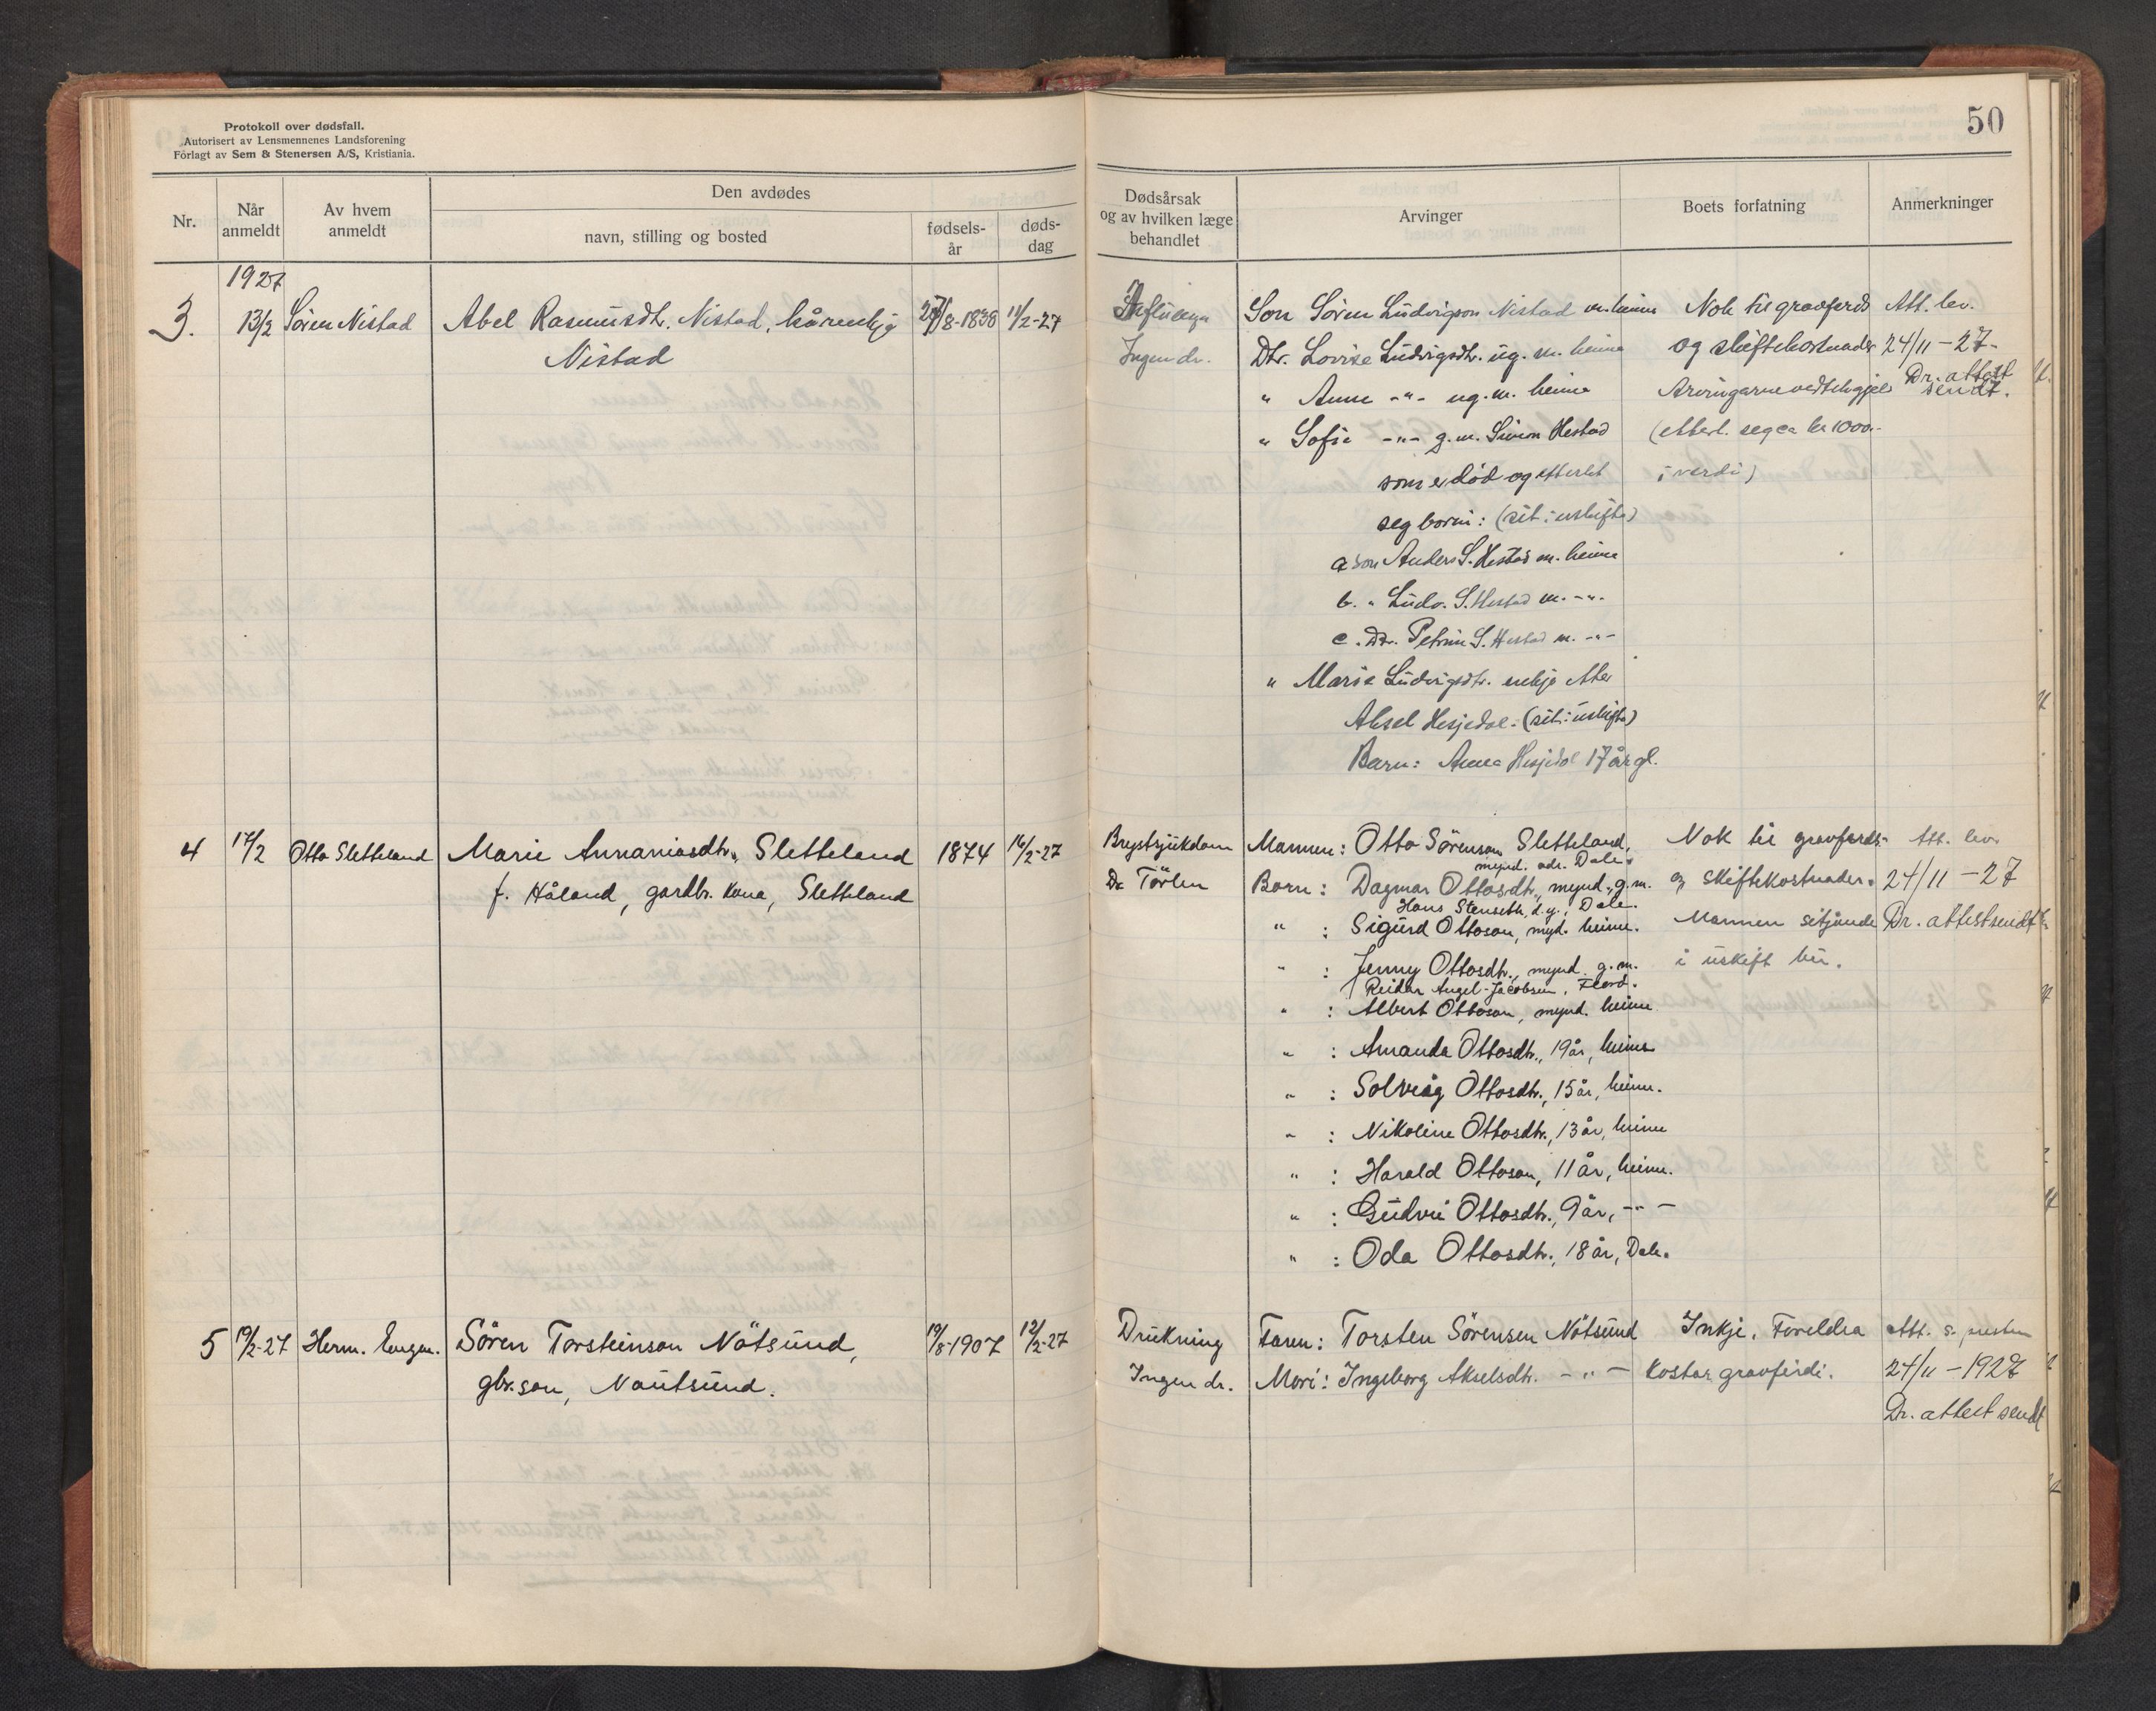 Protokoll over dødsfall.
Autorisert av Lensmennenes Landsforening
Forlagt av Sem & Stenersen A/S, Kristiania.
50
Nr.
Når anmeldt
Av hvem anmeldt
Den avdødes
navn, stilling og bosted
fødsels-år
døds-dag
Dødsårsak og av hvilken læge behandlet
Arvinger
Boets forfatning
Anmerkninger
1927
3. 13/2 Sören Nistad Abel Rasmusdtr. Nistad, kårenkja 27/8-1838 11/2-27
Nistad
Influensa
Ingen dr.
Son Sören Ludvigson Nistad m. heime
Dtr. Lovise Ludvigsdtr. ug. m. heime
" Anne -"- ug. m. heime
" Sofie -"- g.m. Simon Hestad
som er död og etterlet
seg born: (sit i uskifta)
a son Anders S. Hestad m. heime
b. " Ludv. S. Hestad m. -"-
c. Dtr. Petrine S. Hestad m. -"-
" Marie Ludvigsdtr. enkje etter
Aksel Hesjedal. (sit i uskifta)
Barn: Anna Hesjedal 17 år gl.
Nok til gravferds
og skiftekostnader
Arvingarne vedtek gjeld
(etterl. seg ca kr 1000.-
i verdi)
Att. lev.
24/11-27.
Dr. attest
sendt.
4 17/2 Otto Sletteland Marie Annaniasdtr. Sletteland 1874 16/2-27
f. Håland, gardbr. kona, Sletteland
Brystsjukdom
Dr.
Mannen: Otto Sörenson Sletteland,
mynd. adr. Dale.
Born: Dagmar Ottosdtr., mynd., g.m.
Hans Stenseth, d.y., Dale.
" : Sigurd Ottoson, mynd. heime.
" : Jenny Ottosdtr., mynd. g.m.
Reidar Angel-Jacobsen, Florö.
" : Albert Ottoson, mynd. heime
" : Amanda Ottosdtr., 19 år, heime
" : Solveig Ottosdtr., 15 år, heime.
" : Nikoline Ottosdtr., 13 år, heime
" : Harald Ottoson, 11 år, heime.
" : Gudvei Ottosdtr., 9 år, -"-
" : Oda Ottosdtr., 18 år, Dale.
Nok til gravferds-
og skiftekostnader.
Mannen sitjande
i uskift bu.
Att. lev.
24/11-27
Dr. attest sendt
5 19/2-27 Herm. Sören Torsteinson Nötsund, 19/8-1907 12/2-27
gbr.son, Nautsund.
Drukning
Ingen dr.
Faren: Torsten Sörensen Nötsund
Mori: Ingeborg Akselsdtr. -"-
Inkje. Foreldra
kostar gravferdi.
Att. s. presten
24/11-1927
Dr. attest sendt